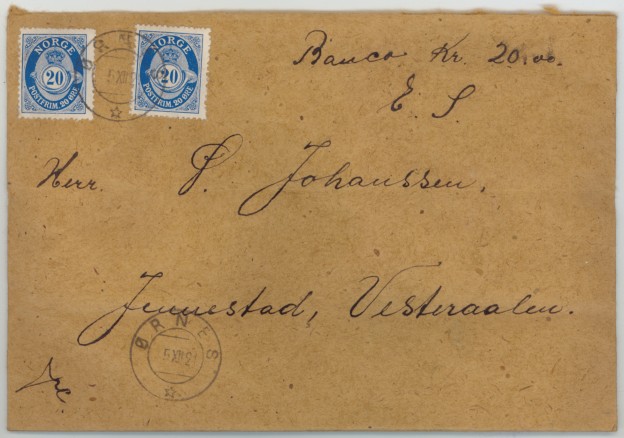 NORGE
20
POSTFRIM. 20 ØRE
NORGE
20
POSTFRIM. 20 ØRE
ØRNES
Banco Kr. 20.00.
E S
Herr. P. Johanssen.
Jennestad, Vesteraalen.
ØRNES